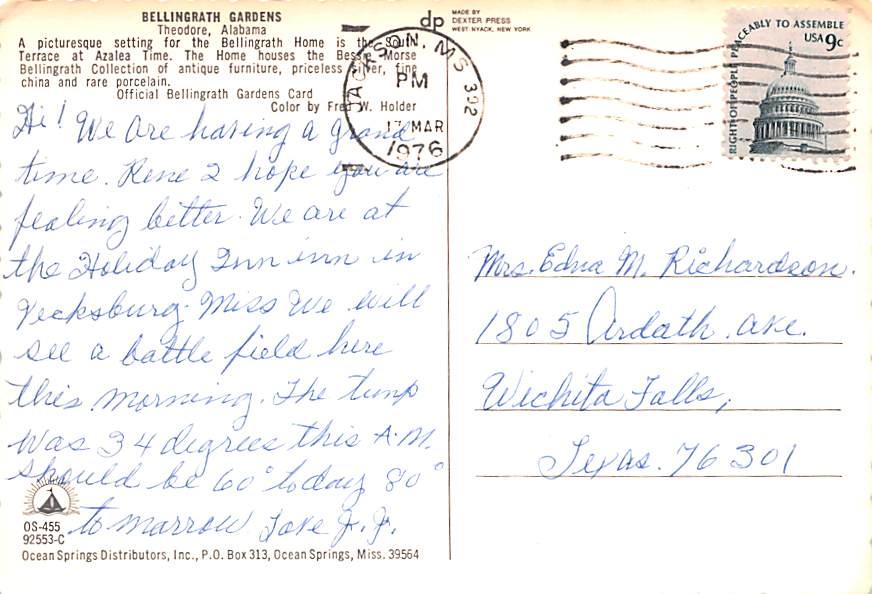 BELLINGRATH GARDENS
Theodore, Alabama
A picturesque setting for the Bellingrath Home is the South
Terrace at Azalea Time. The Home houses the Bessie Morse
Bellingrath Collection of antique furniture, priceless silver, fine
china and rare porcelain.
Official Bellingrath Gardens Card
Color by Fred W. Holder
dp
MADE BY
DEXTER PRESS
WEST NYACK, NEW YORK
JACKSON, MS 392
PM
17 MAR
1976
RIGHT OF PEOPLE PEACEABLY TO ASSEMBLE
USA 9c
Hi! We are having a grand
time. Rene & I hope you are
fealing better. We are at
the Holiday Inn inn in
Vecksburg. Miss We will
see a battle field here
this morning. The temp
was 34 degrees this A.M.
should be 60° today 80°
to marrow Love J. J.
Mrs. Edna M. Richardson.
1805 Ardath. ave.
Wichita Falls,
Texas. 76301
OS-455
92553-C
Ocean Springs Distributors, Inc., P.O. Box 313, Ocean Springs, Miss. 39564